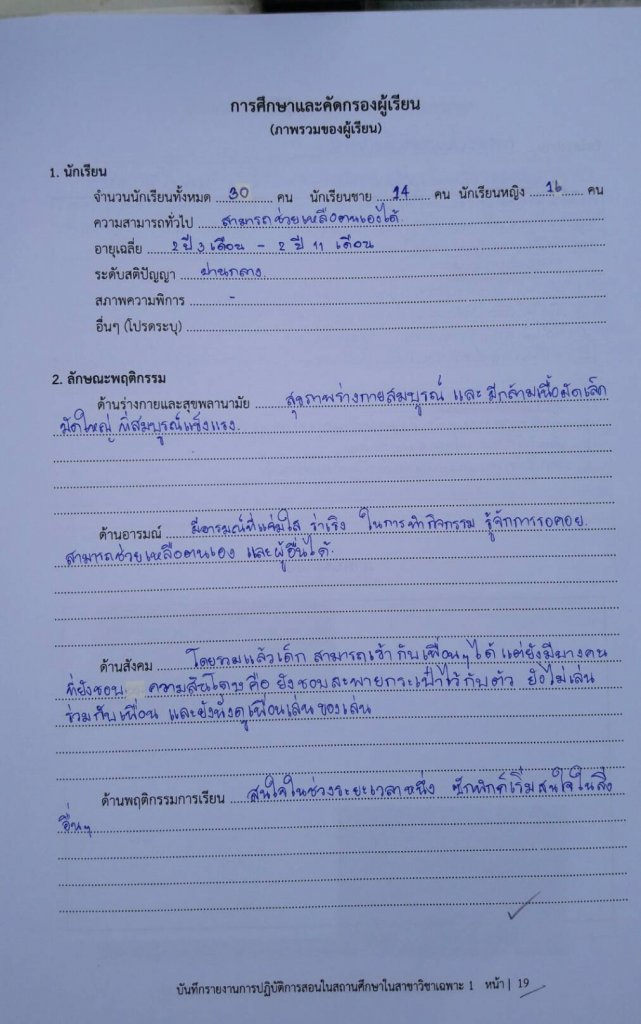 การศึกษาและคัดกรองผู้เรียน
(ภาพรวมของผู้เรียน)
1. นักเรียน
จำนวนนักเรียนทั้งหมด 30 คน นักเรียนชาย 14 คน นักเรียนหญิง 16 คน
ความสามารถทั่วไป สามารถช่วยเหลือตนเองได้
อายุเฉลี่ย 2 ปี 3 เดือน - 2 ปี 11 เดือน
ระดับสติปัญญา ปานกลาง
สภาพความพิการ -
อื่นๆ (โปรดระบุ)
2. ลักษณะพฤติกรรม
ด้านร่างกายและสุขพลานามัย สุขภาพร่างกายสมบูรณ์ และ มีกล้ามเนื้อมัดเล็ก
มัดใหญ่ ที่สมบูรณ์แข็งแรง.
ด้านอารมณ์ มีอารมณ์ที่แจ่มใส ร่าเริง ในการทำกิจกรรม รู้จักการรอคอย
สามารถช่วยเหลือตนเอง และผู้อื่นได้.
ด้านสังคม โดยรวมแล้วเด็ก สามารถเข้า กับเพื่อนๆ ได้ แต่ยังมีบางคน
ที่ยังชอบ ความสันโดษ คือ ยังชอบสะพายกระเป๋าไว้กับตัว ยังไม่เล่น
ร่วมกับเพื่อน และยังนั่งดูเพื่อนเล่นของเล่น
ด้านพฤติกรรมการเรียน สนใจในช่วงระยะเวลาหนึ่ง สักพักก็เริ่มสนใจในสิ่ง
อื่นๆ
บันทึกรายงานการปฏิบัติการสอนในสถานศึกษาในสาขาวิชาเฉพาะ 1 หน้า | 19